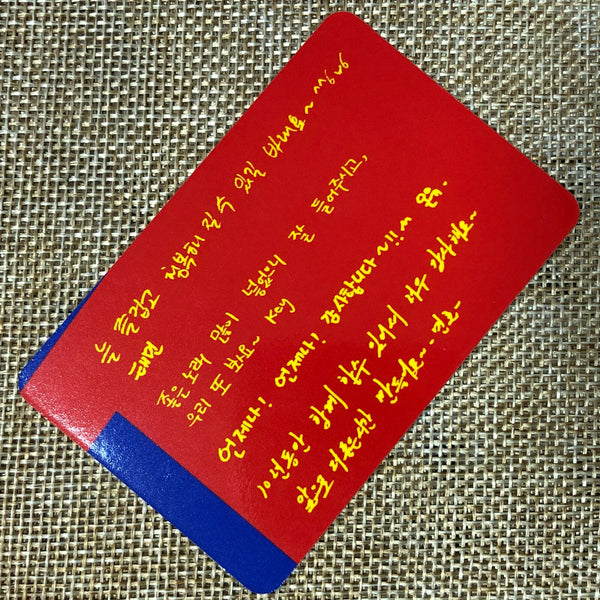 늘 즐겁고 행복해 질 수 있길 바래요~ ^^
태민
좋은 노래 많이 넣었으니 잘 들어주시고,
우리 또 보요~ Key
언제나! 언제나! 감사합니다~!! ^^ 온유.
10년동안 함께 할수 있어서 너무 감사해요~
앞으로 더 좋은추억 만들어요~ 민호~